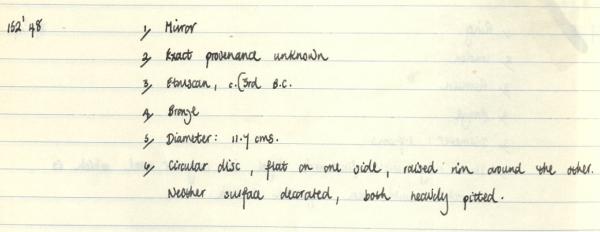 152'48 1, Mirror
2, Exact provenance unknown
3, Etruscan, c.(3rd B.C.
4, Bronze
5, Diameter: 11.7 cms.
6, Circular disc, flat on one side, raised rim around the other.
Neither surface decorated, both heavily pitted.